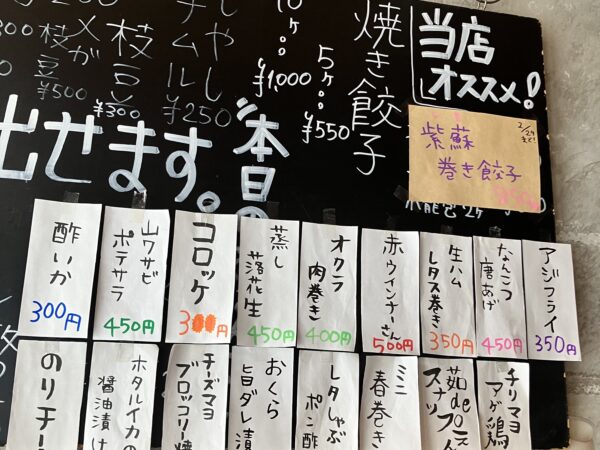 当店
オススメ!
焼き餃子
5ヶ
¥550
10ヶ
¥1,000
¥250
枝豆
¥300
枝豆
¥500
紫蘇
巻き餃子
2/29
まで!
本日の
出せます。
アジフライ
350円
なんこつ
唐あげ
450円
生ハム
レタス巻き
350円
赤ウインナーさん
500円
オクラ
肉巻き
400円
蒸し
落花生
450円
コロッケ
300円
山ワサビ
ポテサラ
450円
酢いか
300円
チリマヨ
アゲ鶏
茹de
スナップ
ミニ
春巻き
レタしゃぶ
ポン酢
おくら
旨ダレ漬
チーズマヨ
ブロッコリ焼
ホタルイカの
醤油漬け
のりチー